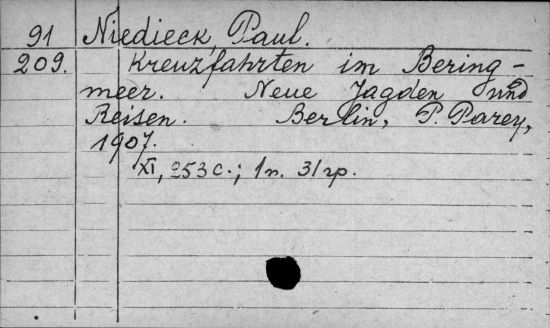 91 Niedieck, Paul.
209. Kreuzfahrten im Bering-
meer. Neue Jagden und
Reisen. Berlin, P. Parey,
1907.
XI, 253 c.; 1 п. 31 гр.